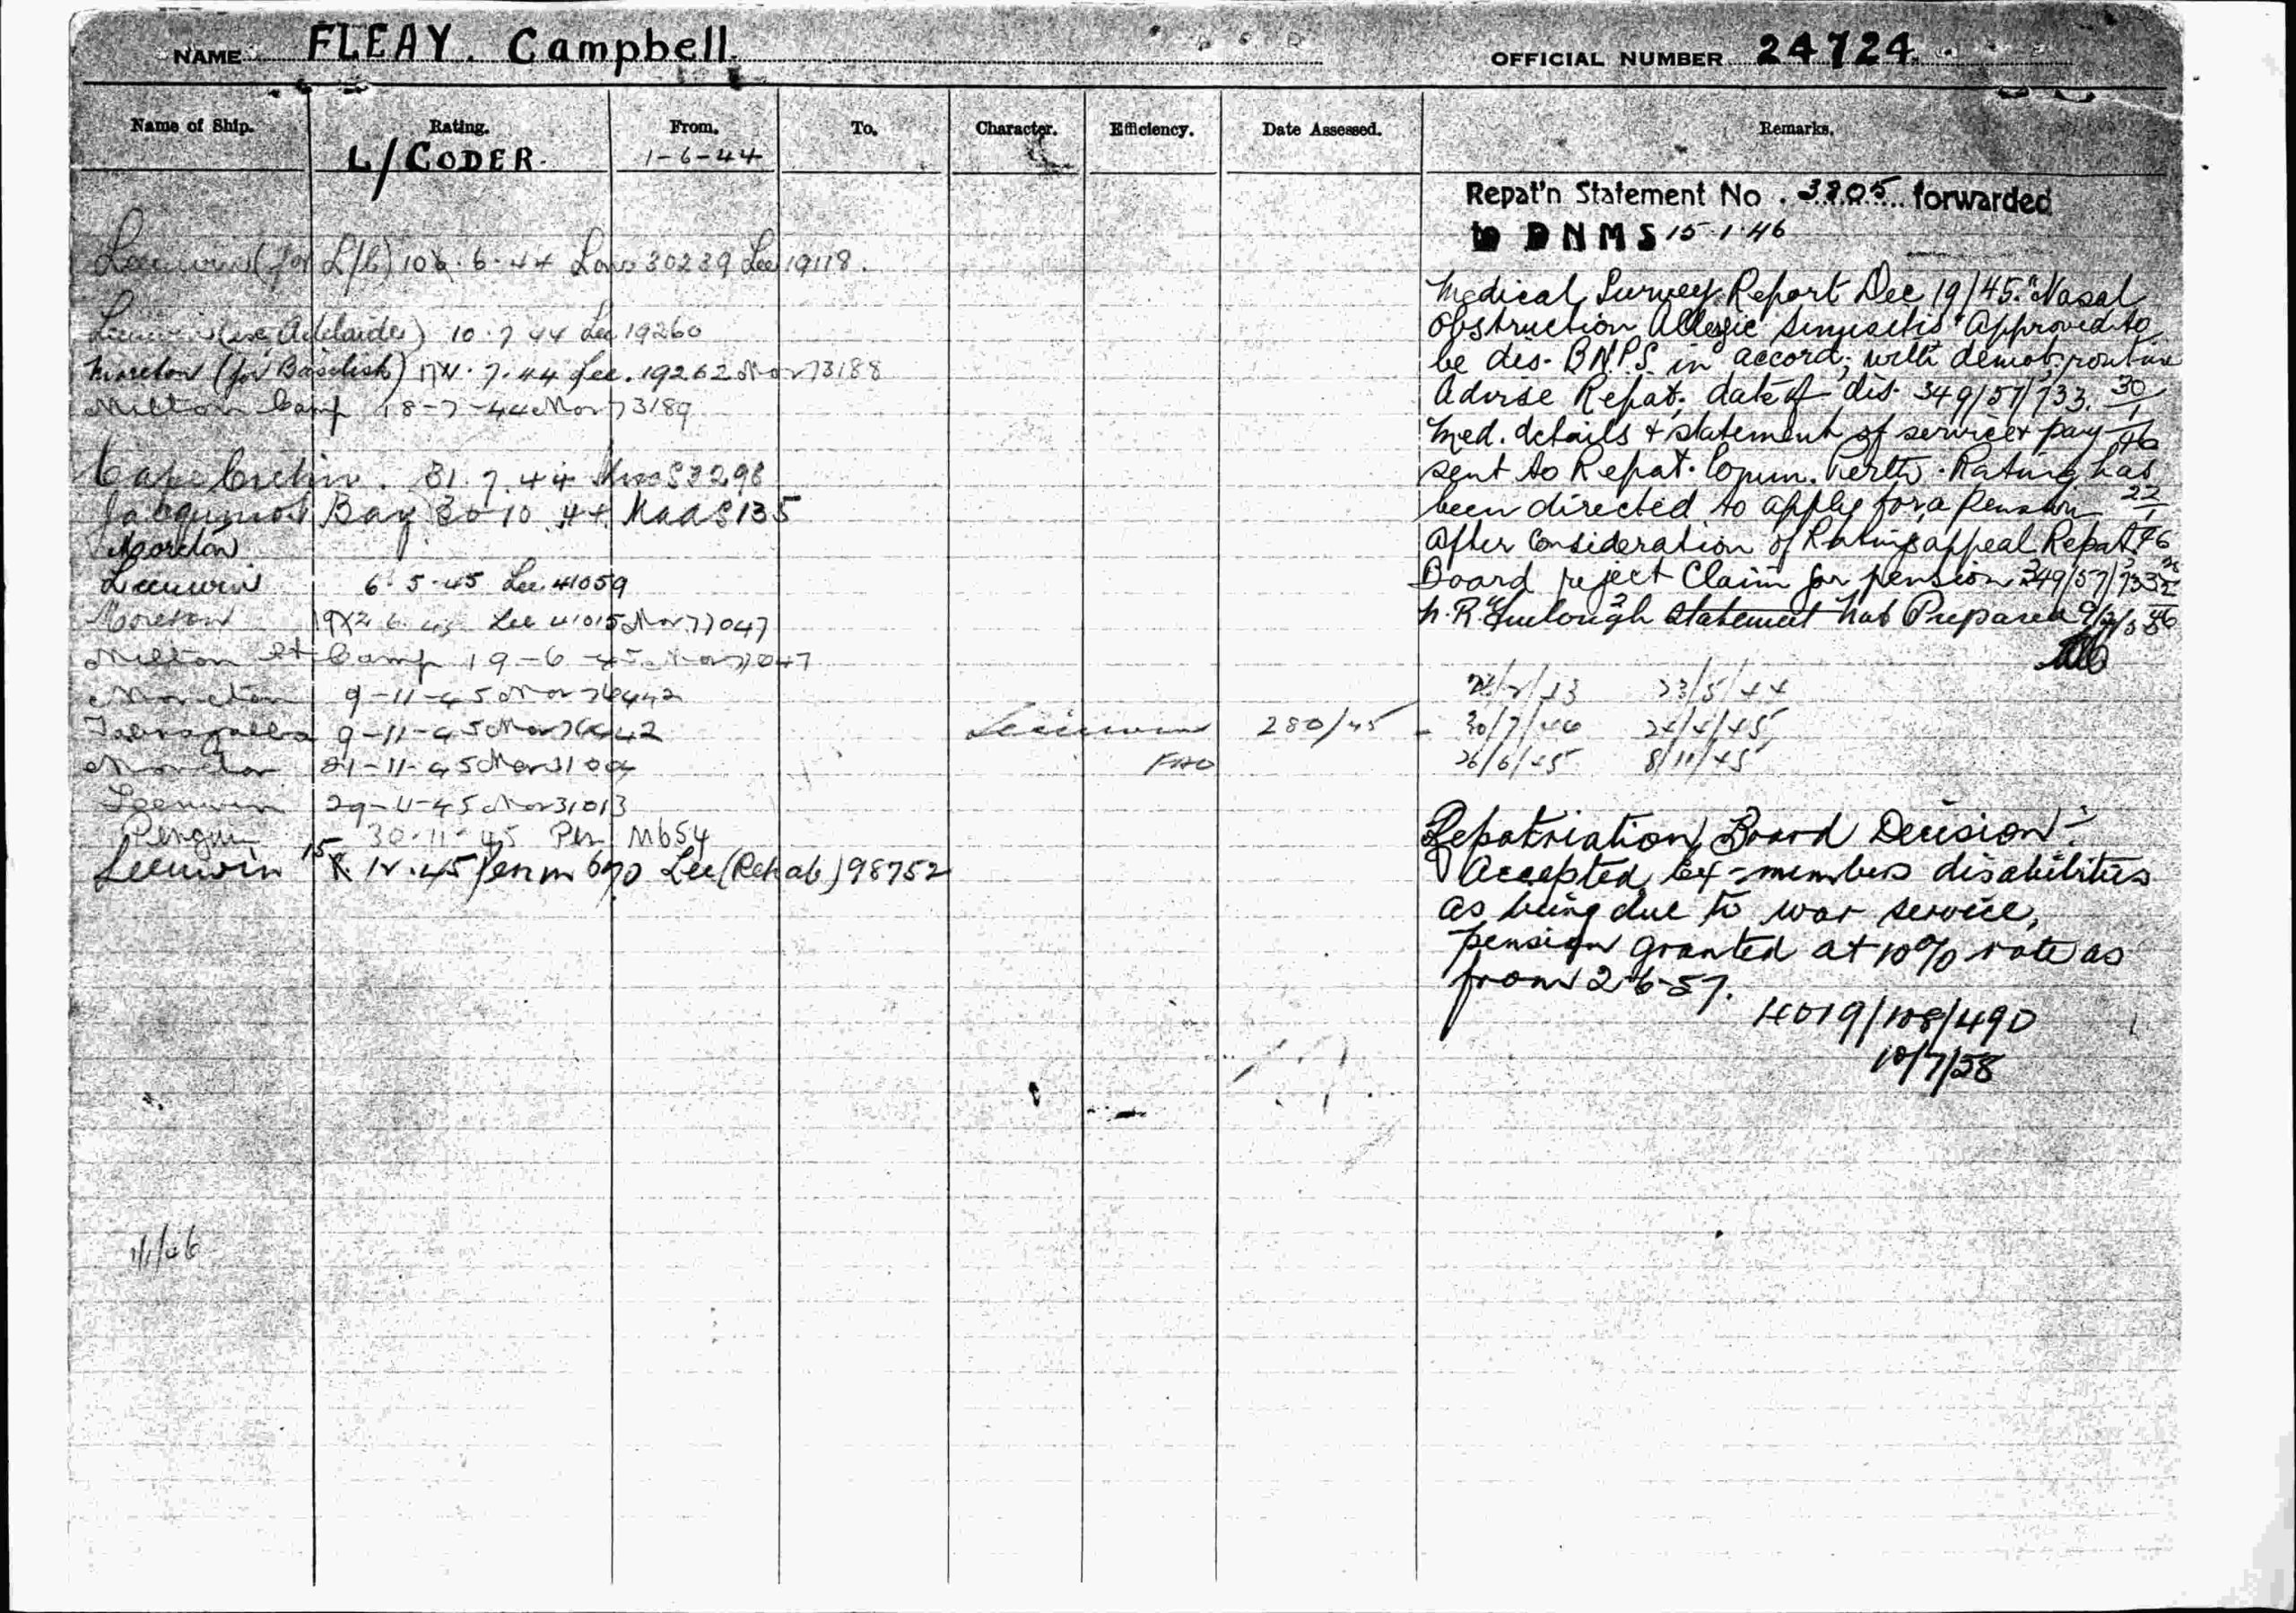 NAME FLEAY. Campbell. OFFICIAL NUMBER 24724.
Name of Ship. Rating. From. To. Character. Efficiency. Date Assessed. Remarks.
L/CODER. 1-6-44
Repat'n Statement No. 3805 forwarded
to DNMS 15.1.46
Leeuwin (for L/C) 6.44 Lons 30239 Lee 19118.
Leeuwin (ex Adelaide) 10.7.44 Lee 19260
Moreton (for Basilisk) 7.44 Lee. 19262 Mor 73188
Milton Camp 18-7-44 Mor 73189
Cape Cretin. 31.7.44 3298
Jacquinot Bay 30 10 44. Maas 135
Moreton
Leeuwin 6.5.45 Lee 41059
Moreton Lee 41015 Mor 77047
Milton St Camp 19-6-45 Mor 77047
Moreton 9-11-45 Mor 76442
Toorngabba 9-11-45 Mor 76442
Moreton 21-11-45 Mor 31004
Leeuwin 29-11-45 Mor 31013
Penguin 30-11-45 Pen M654
Leeuwin 15 12.45 Pen m 670 Lee (Rehab) 98752
Medical Survey Report Dec 19/45. "Nasal
Obstruction Allergic Sinusitis" Approved to
be dis. B.N.P.S. in accord; with demob; routine
Advise Repat; date of dis. 349/57/733. 30/1
Med. details & statement of service & pay /46
sent to Repat. Comm. Perth. Rating has
been directed to apply for a pension 22/1
After Consideration of Ratings appeal Repat. 46
Board reject Claim for pension 349/57/733
N.R. Furlough Statement Not Prepared
23/5/44
Leeuwin 280/45 - 30/7/44 24/4/45
26/6/45 8/11/45
Repatriation Board Decision:-
Accepted, ex-members disabilities
as being due to war service,
pension granted at 10% rate as
from 2-6-57.
4019/108/490
10/7/58
11/1/46